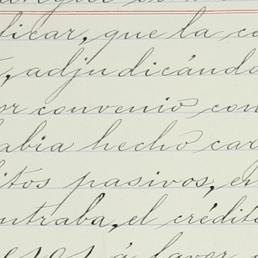 licar, que la co
, adjudicándo
or convenio con
abia hecho car
itos pasivos, en
ntraba, el crédito
esos á favor